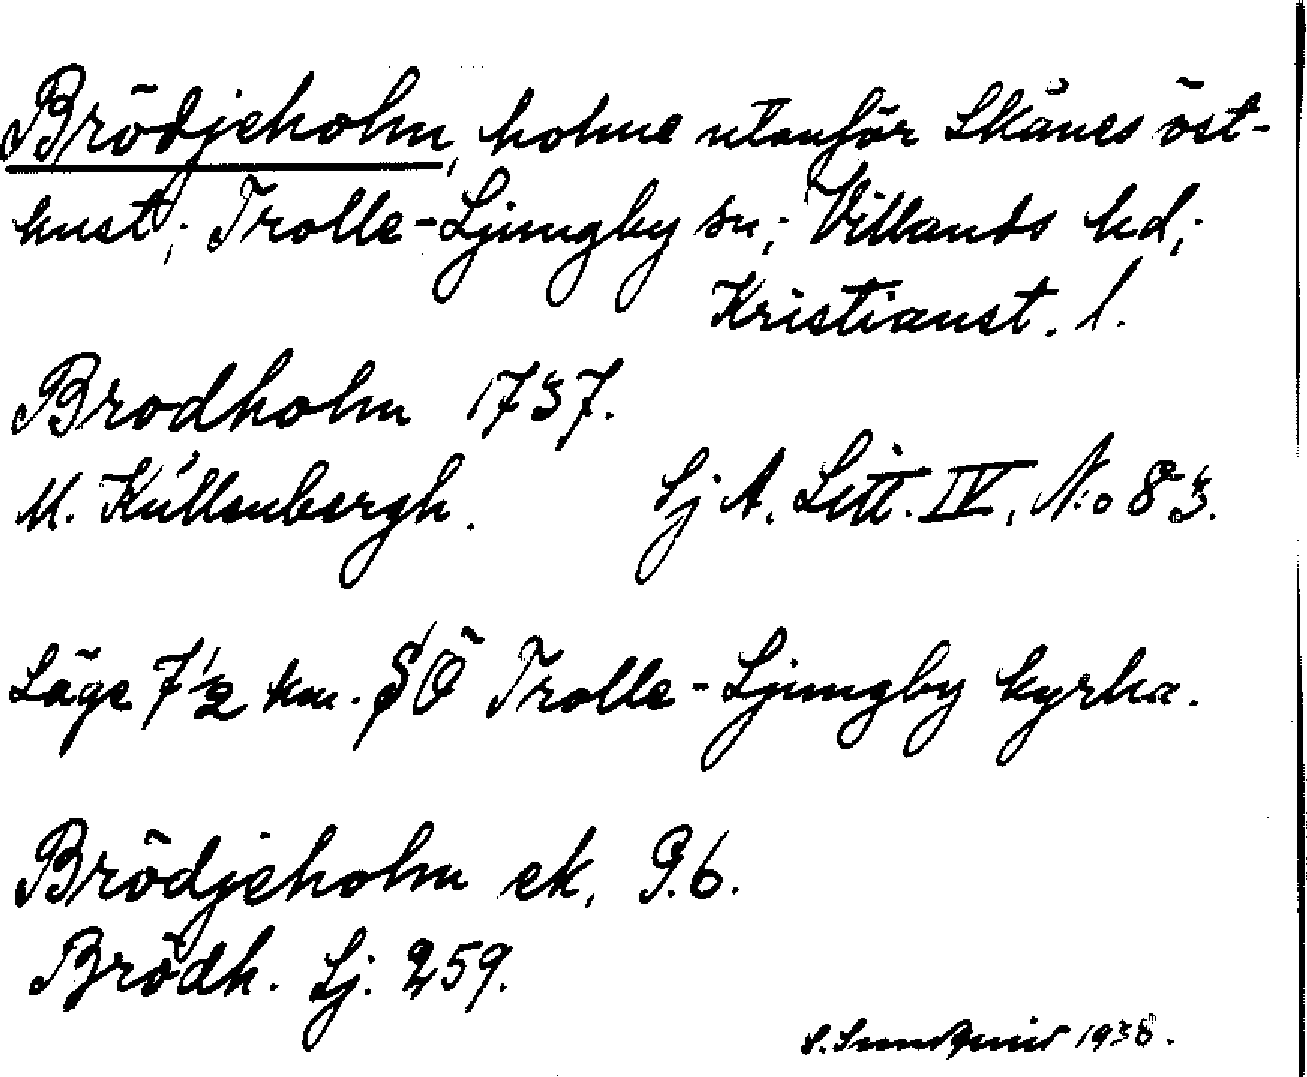 Brödjeholm, holme utanför Skånes öst-
kust; Trolle-Ljungby sn; Villands hd;
Kristianst. l.
Brodholm 1737.
M. Küllenbergh. Lj A. Litt. IV, No 83.
Läge 7 1/2 km. SÖ Trolle-Ljungby kyrka.
Brödjeholm ek. 9.6.
Brödh. Lj. 259.
S. 1938.